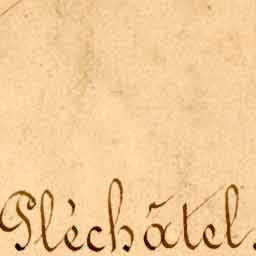 Pléchâtel.